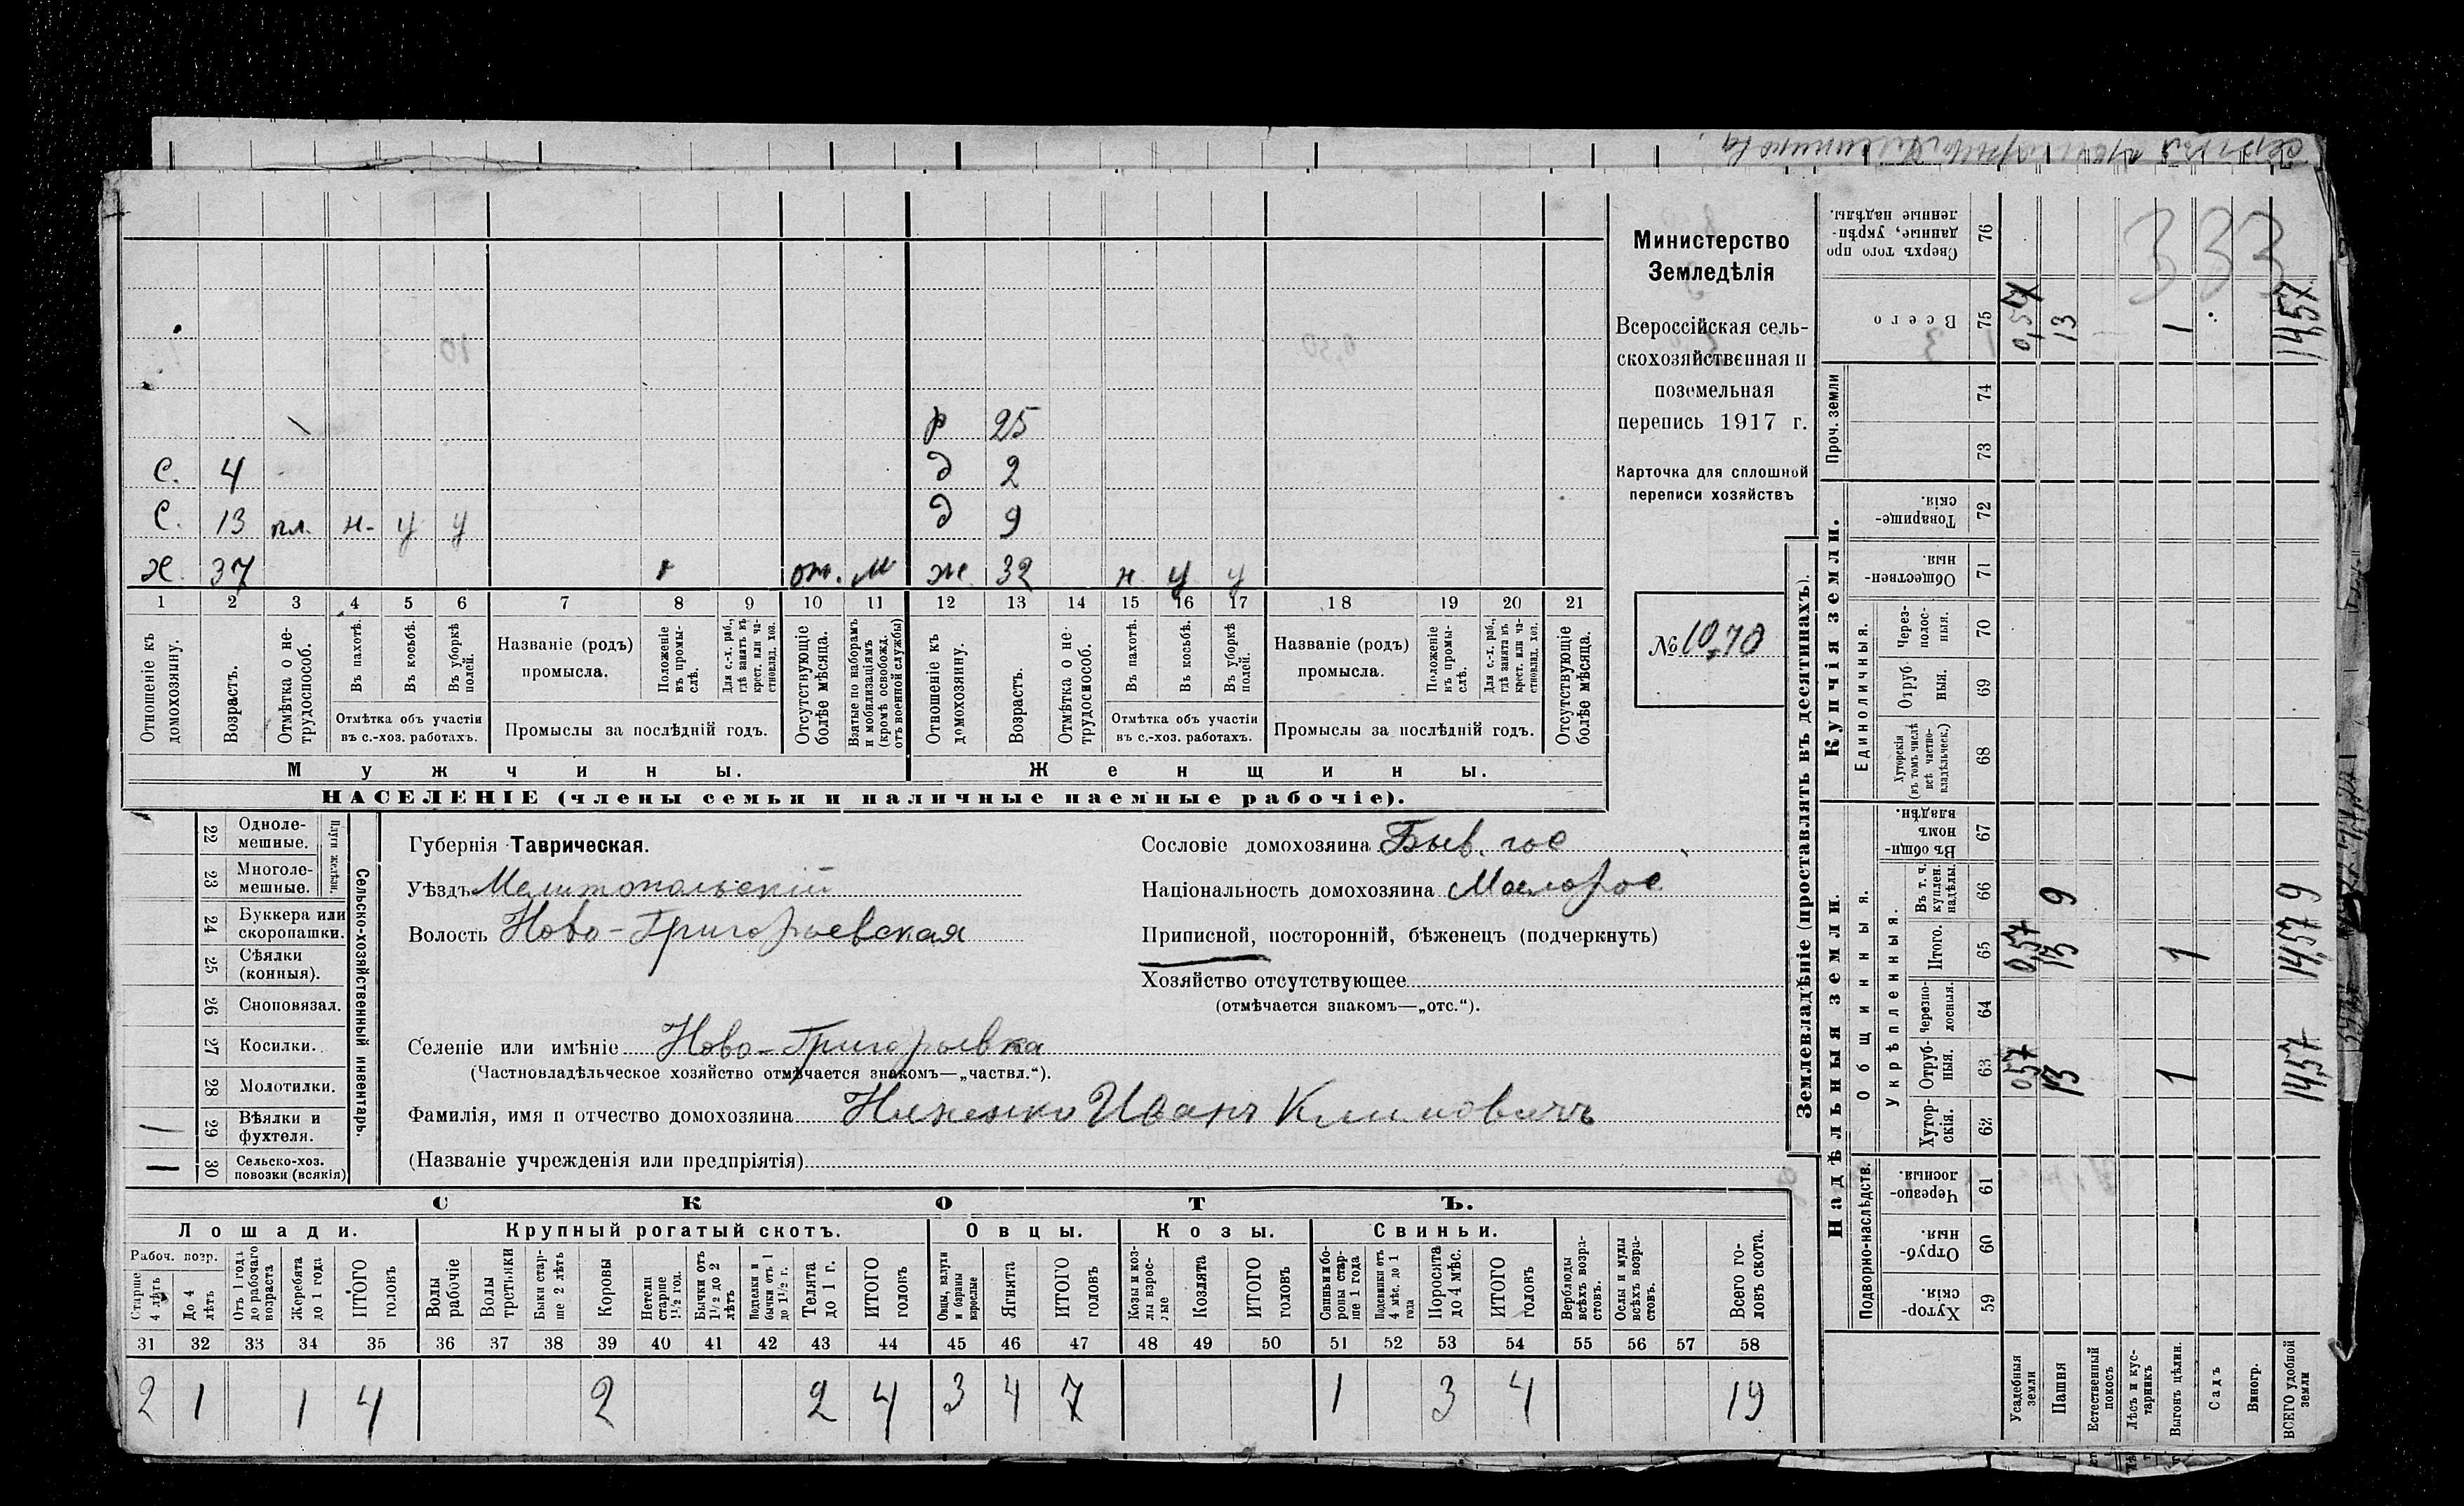 333
Министерство
Земледѣлія
Всероссійская сель-
скохозяйственная и
поземельная
перепись 1917 г.
Карточка для сплошной
переписи хозяйствъ
№ 10,70
р 25
С. 4 д 2
С. 13 пл. н. у у д 9
х. 37 от. м ж 32 н у у
1 2 3 4 5 6 7 8 9 10 11 12 13 14 15 16 17 18 19 20 21
Отношеніе къ домохозяину.
Возрастъ.
Отмѣтка о не-трудоспособ.
Въ пахотѣ.
Въ косьбѣ.
Въ уборкѣ полей.
Отмѣтка объ участіи
въ с.-хоз. работахъ.
Названіе (родъ)
промысла.
Положеніе въ промы-слѣ.
Для с.-х. раб., гдѣ занятъ въ крест. или ча-стновлад. хоз.
Промыслы за послѣдній годъ.
Отсутствующіе болѣе мѣсяца.
Взятые по наборамъ и мобилизаціямъ (кромѣ освобожд. отъ военной службы)
Отношеніе къ домохозяину.
Возрастъ.
Отмѣтка о не-трудоспособ.
Въ пахотѣ.
Въ косьбѣ.
Въ уборкѣ полей.
Отмѣтка объ участіи
въ с.-хоз. работахъ.
Названіе (родъ)
промысла.
Положеніе въ промы-слѣ.
Для с.-х. раб., гдѣ занята въ крест. или ча-стновлад. хоз.
Промыслы за послѣдній годъ.
Отсутствующіе болѣе мѣсяца.
Мужчины. Женщины.
НАСЕЛЕНІЕ (члены семьи и наличные наемные рабочіе).
Сельско-хозяйственный инвентарь.
Плуги желѣзн.
22 Одноле-мешные.
23 Многоле-мешные.
24 Буккера или скоропашки.
25 Сѣялки (конныя).
26 Сноповязал.
27 Косилки.
28 Молотилки.
1 29 Вѣялки и фухтеля.
1 30 Сельско-хоз. повозки (всякія)
Губернія Таврическая.
Уѣздъ Мелитопольскій
Волость Ново-Григорьевская
Сословіе домохозяина Быв. гос
Національность домохозяина Малорос
Приписной, посторонній, бѣженецъ (подчеркнуть)
Хозяйство отсутствующее
(отмѣчается знакомъ—„отс.“).
Селеніе или имѣніе Ново-Григорьевка
(Частновладѣльческое хозяйство отмѣчается знакомъ—„частвл.“).
Фамилія, имя и отчество домохозяина Иванъ Климовичъ
(Названіе учрежденія или предпріятія)
СКОТЪ.
Лошади. Крупный рогатый скотъ. Овцы. Козы. Свиньи.
Рабоч. возр.
Старше 4 лѣтъ
До 4 лѣтъ
Отъ 1 года до рабочаго возраста
Жеребята до 1 года
ИТОГО головъ
Волы рабочіе
Волы третьяки
Быки стар-ше 2 лѣтъ
Коровы
Нетели старше 1½ год.
Бычки отъ 1½ до 2 лѣтъ
Подтелки и бычки отъ 1 до 1½ г.
Телята до 1 г.
ИТОГО головъ
Овцы, валухи и бараны взрослые
Ягнята
ИТОГО головъ
Козы и коз-лы взрос-лые
Козлята
ИТОГО головъ
Свиньи и бо-ровы стар-ше 1 года
Подсвинки отъ 4 мѣс. до 1 года
Поросята до 4 мѣс.
ИТОГО головъ
Верблюды всѣхъ возра-стовъ.
Ослы и мулы всѣхъ возра-стовъ.
Всего го-ловъ скота.
31 32 33 34 35 36 37 38 39 40 41 42 43 44 45 46 47 48 49 50 51 52 53 54 55 56 57 58
2 1 1 4 2 2 4 3 4 7 1 3 4 19
Землевладѣніе (проставлять въ десятинахъ).
Надѣльныя земли.
Купчія земли.
Проч. земли
Подворно-наслѣдств.
Общинныя.
Укрѣпленныя.
Единоличныя.
Хутор-скія. 59
Отруб-ныя. 60
Черезпо-лосныя. 61
Хутор-скія. 62
Отруб-ныя. 63
Черезпо-лосныя. 64
Итого. 65
Въ т. ч. куплен. надѣлы. 66
Въ общи-номъ владѣн. 67
Хуторскія (въ томъ числѣ всѣ частно-владѣльческ.) 68
Отруб-ныя. 69
Через-полос-ныя. 70
Обществен-ныя. 71
Товарище-скія. 72
73
74
Всего 75
Сверхъ того про-данные, укрѣп-ленные надѣлы. 76
Усадебныя земли 0,57 0,57 0,57
Пашня 13 13 9 13
Естественный покосъ
Лѣсъ и кус-тарникъ
Выгонъ цѣлин. 1 1 1
Садъ
Виногр.
ВСЕГО удобной земли 14,57 14,57 9 14,57